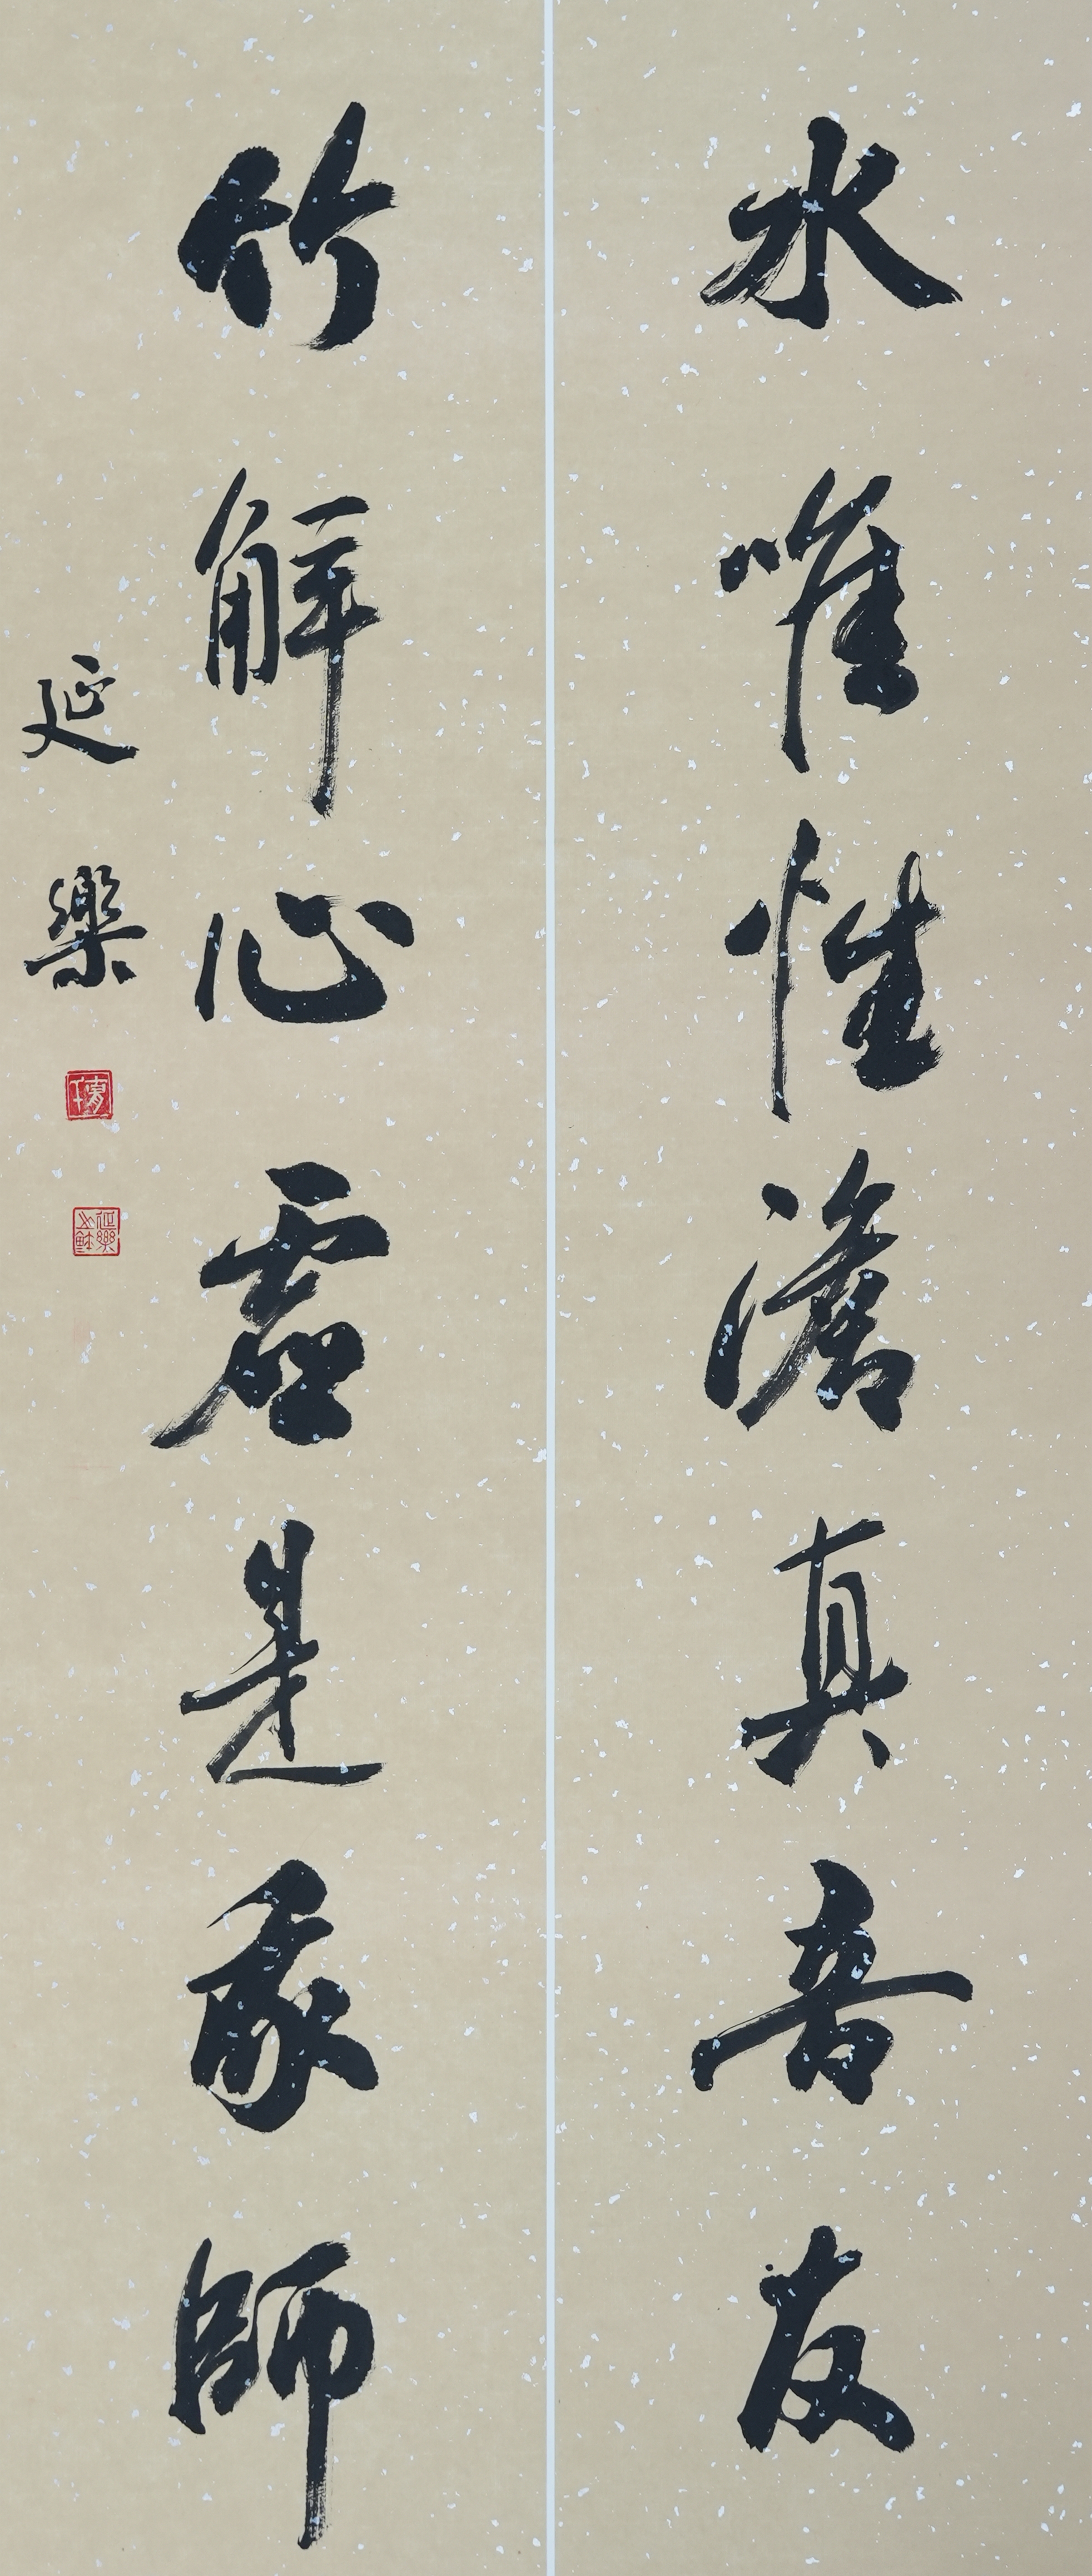 水唯性澹真吾友
竹解心虚是我師
延樂